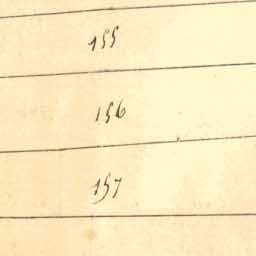 155
156
157